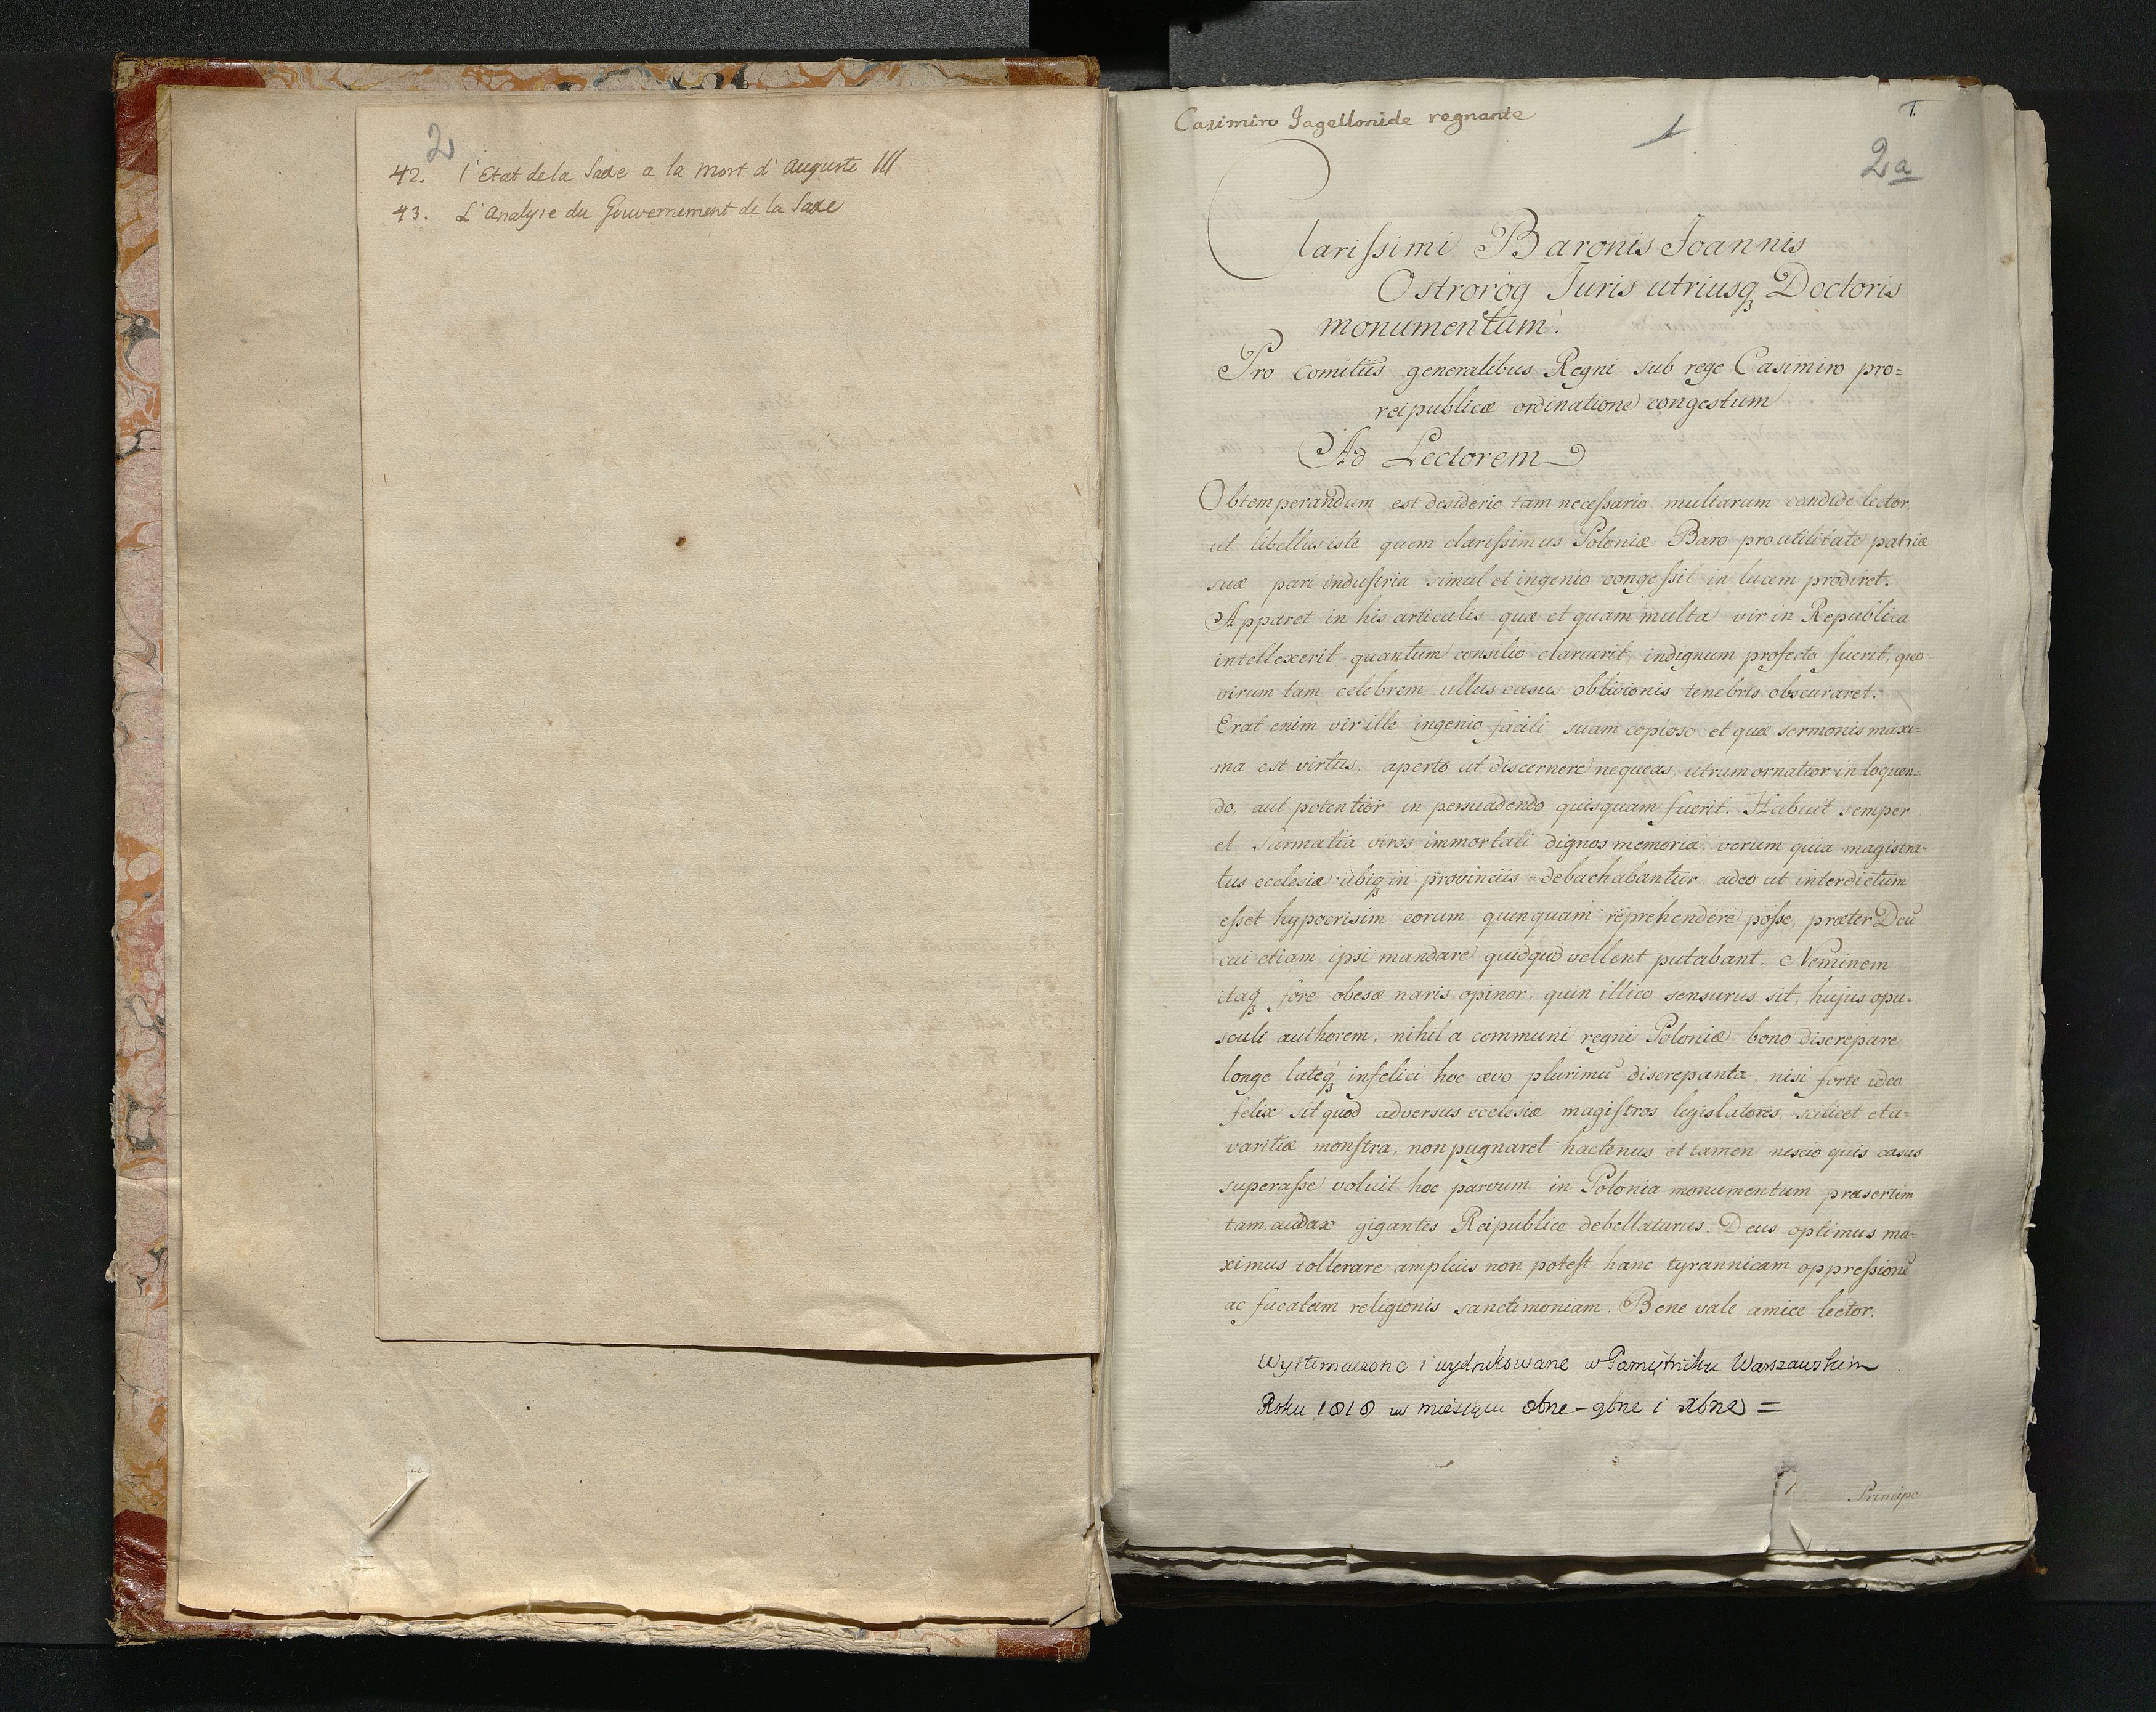 2
42. l'Etat de la Saxe a la mort d'Auguste III
43. L'Analyse du Gouvernement de la Saxe
Casimiro Jagellonide regnante
1
1.
2a
Clarissimi Baronis Joannis
Ostroróg Juris utriusq3 Doctoris
monumentum.
Pro comitiis generalibus Regni sub rege Casimiro pro=
reipublicæ ordinatione congestum
Ad Lectorem
Obtemperandum est desiderio tam necessario multarum candide lector,
ut libellus iste quem clarissimus Poloniæ Baro pro utilitate patriæ
suæ pari industria simul et ingenio congessit in lucem prodiret.
Apparet in his articulis quæ et quam multa vir in Republica
intellexerit quantum consilio claruerit, indignum profecto fuerit, quo
virum tam celebrem ullus casus oblivionis tenebris obscuraret.
Erat enim vir ille ingenio facili suam copioso et quæ sermonis maxi=
ma est virtus, aperto ut discernere nequeas, utrum ornatior in loquen=
do, aut potentior in persuadendo quisquam fuerit. Habuit semper
et Sarmatia viros immortali dignos memoria, verum quia magistra=
tus ecclesiæ ubiq3 in provinciis debachabantur adeo ut interdictum
esset hypocrisim eorum quenquam reprehendere posse, præter Deū
cui etiam ipsi mandare quidquid vellent putabant. Neminem
itaq3 fore obesæ naris opinor, quin illico sensurus sit, hujus opu=
sculi authorem, nihil a communi regni Poloniæ bono discrepare
longe lateq3 infelici hoc ævo plurimū discrepanta, nisi forte ideo
felix sit quod adversus ecclesiæ magistros legislatores, scilicet et a=
varitiæ monstra, non pugnaret hactenus et tamen nescio quis casus
superasse voluit hoc parvum in Polonia monumentum præsertim
tam audax gigantes Reipublice debellaturus. Deus optimus ma=
ximus tollerare amplius non potest hanc tyrannicam oppressionē
ac fucatam religionis sanctimoniam. Bene vale amice lector.
Wytłmaczone i wydrukowane w Pamiętniku Warszawskim
Roku 1818 w miesiącu 8bne - 9bne i xbne =
Principe